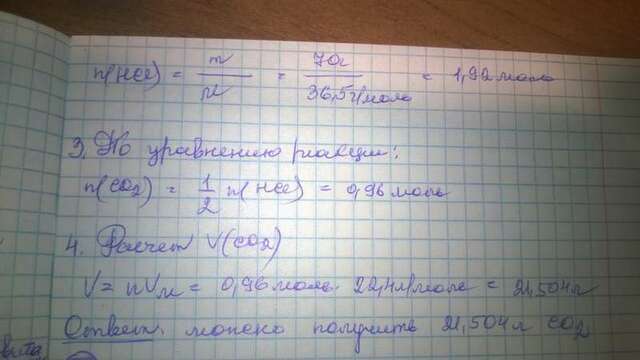 n(HCl) = m/M = 70г/36,5г/моль = 1,92 моль
3. По уравнению реакции:
n(CO2) = 1/2 n(HCl) = 0,96 моль
4. Расчет V(CO2)
V = nVм = 0,96 моль · 22,4л/моль = 21,504л
Ответ: можно получить 21,504 л CO2